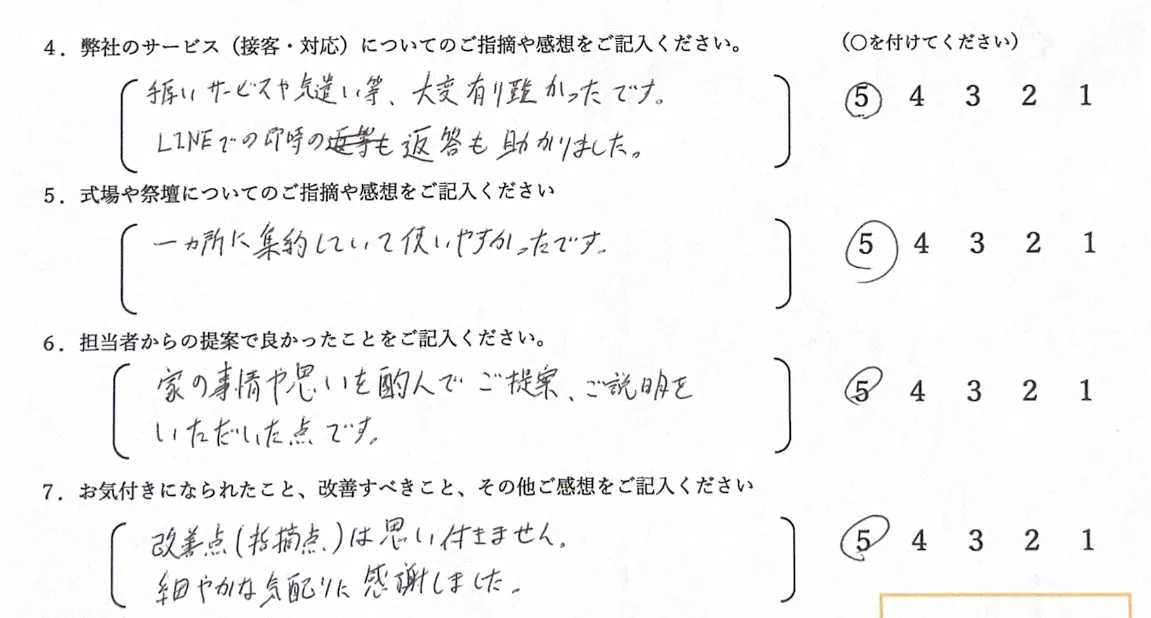 4．弊社のサービス（接客・対応）についてのご指摘や感想をご記入ください。 （○を付けてください）
手厚いサービスや気遣い等、大変有り難かったです。 5 4 3 2 1
LINEでの即時の返答も返答も助かりました。
5．式場や祭壇についてのご指摘や感想をご記入ください
一カ所に集約していて使いやすかったです。 5 4 3 2 1
6．担当者からの提案で良かったことをご記入ください。
家の事情や思いを酌んでご提案、ご説明を 5 4 3 2 1
いただいた点です。
7．お気付きになられたこと、改善すべきこと、その他ご感想をご記入ください
改善点(指摘点)は思い付きません。 5 4 3 2 1
細やかな気配りに感謝しました。